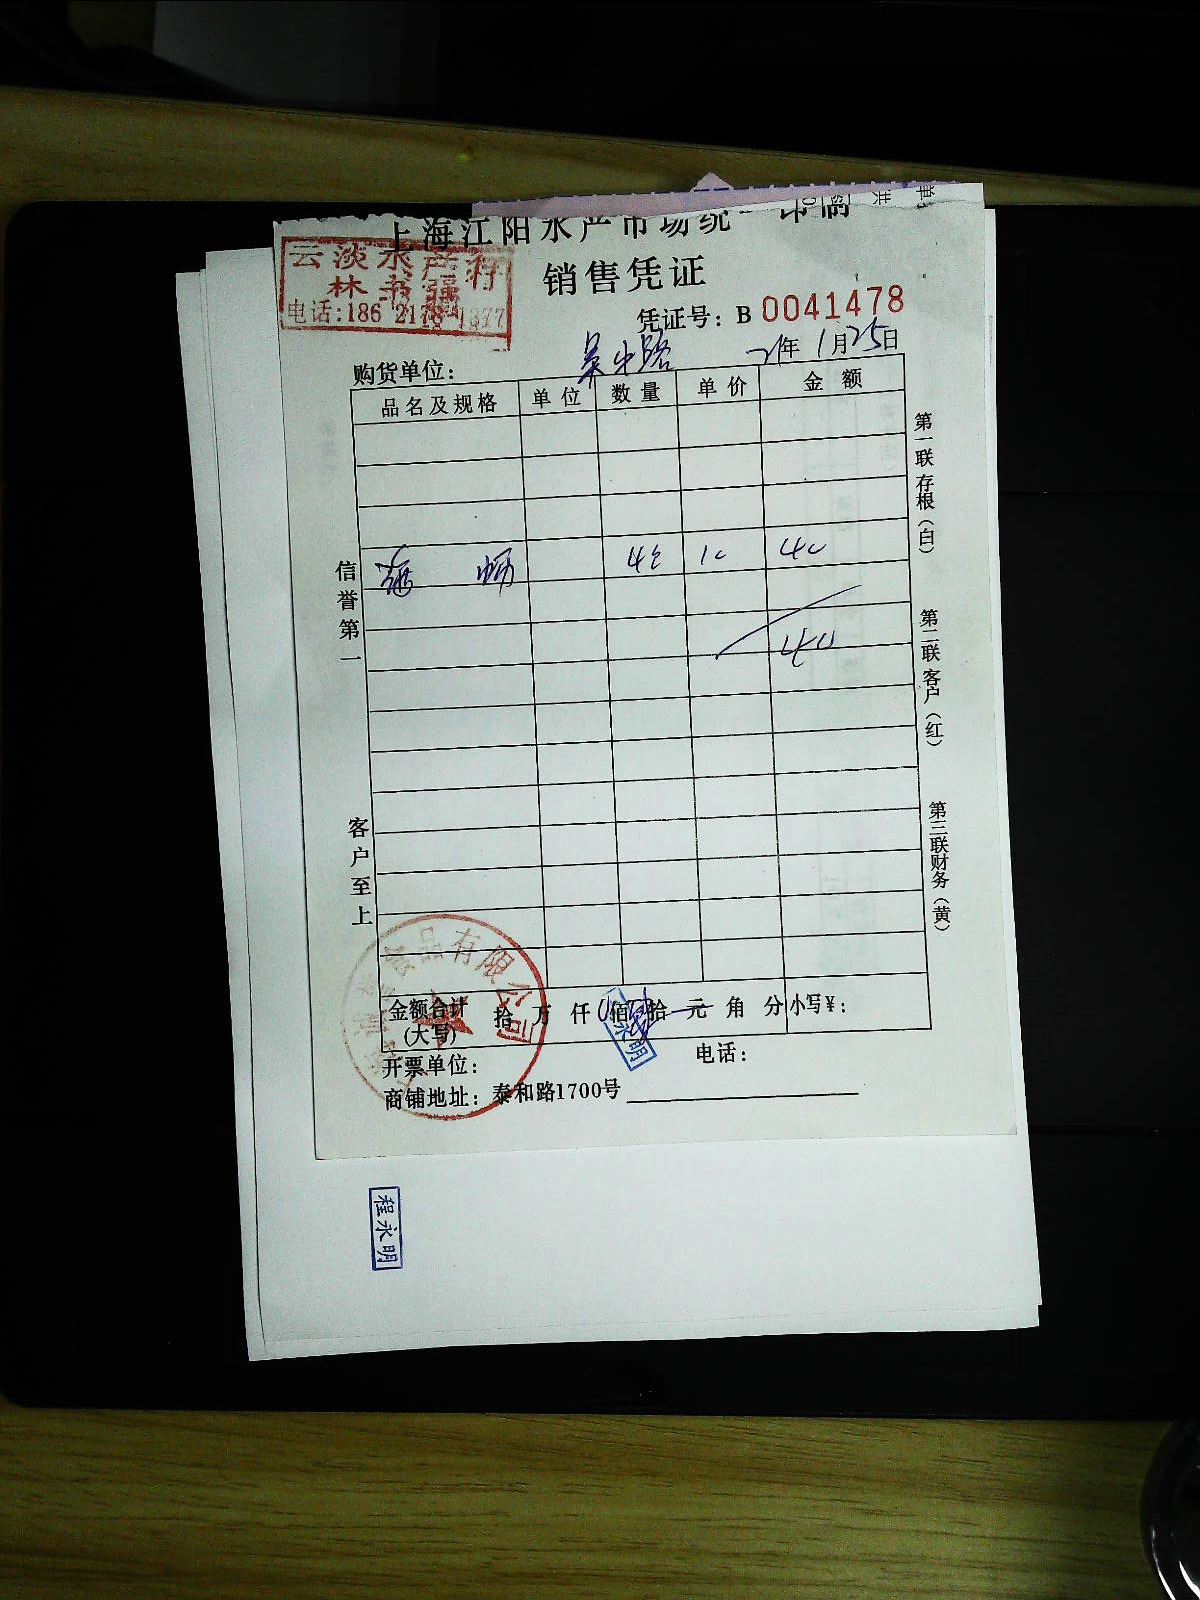 上海江阳水产市场统一印制
云淡水产行
林书强
电话:186 2178 1377
销售凭证
凭证号: B 0041478
购货单位:
21年 1月25日
品名及规格 单位 数量 单价 金额
海 蛎 10 40
40
信誉第一
客户至上
第一联存根(白)
第二联客户(红)
第三联财务(黄)
食品有限公司
金额合计(大写) 拾 万 仟 佰 拾 元 角 分 小写¥:
开票单位: 电话:
商铺地址: 泰和路1700号
程永明